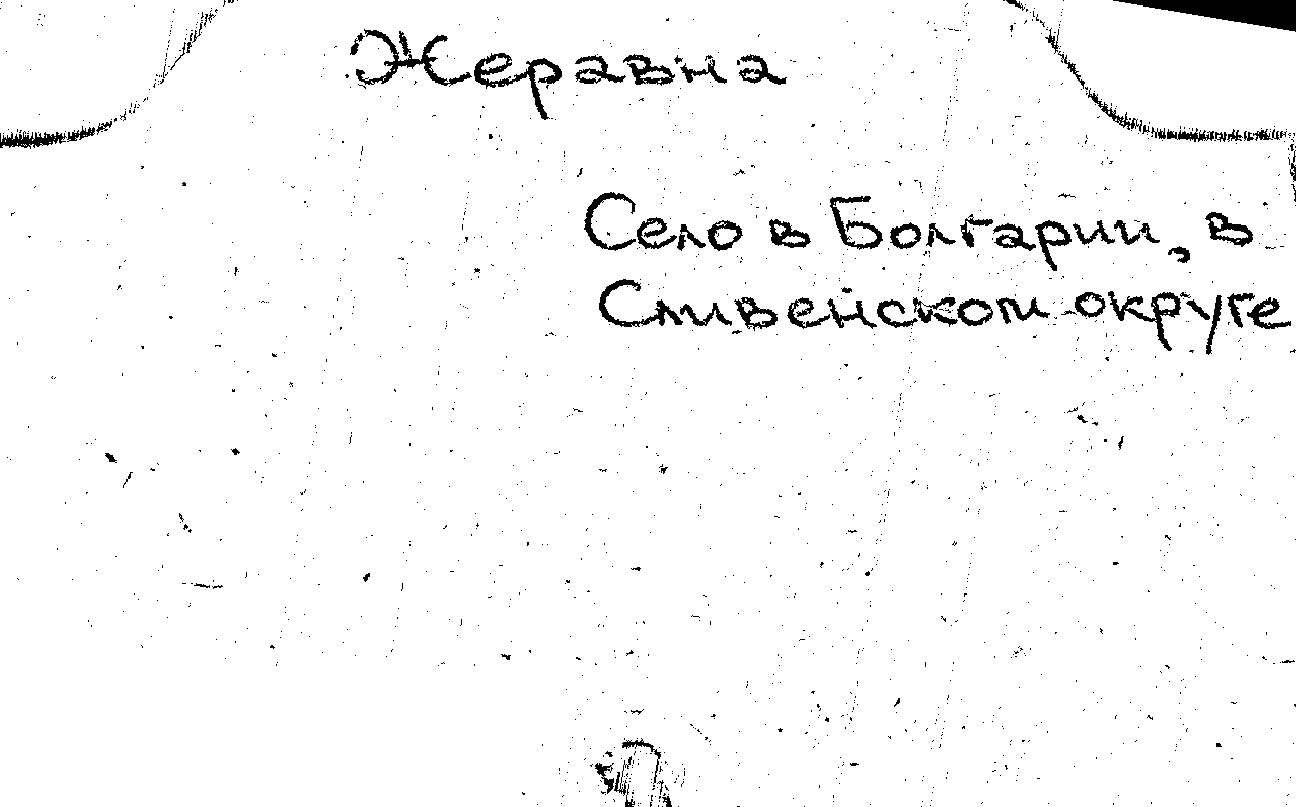 Жеравна
Село в Болгарии, в
Сливенском округе